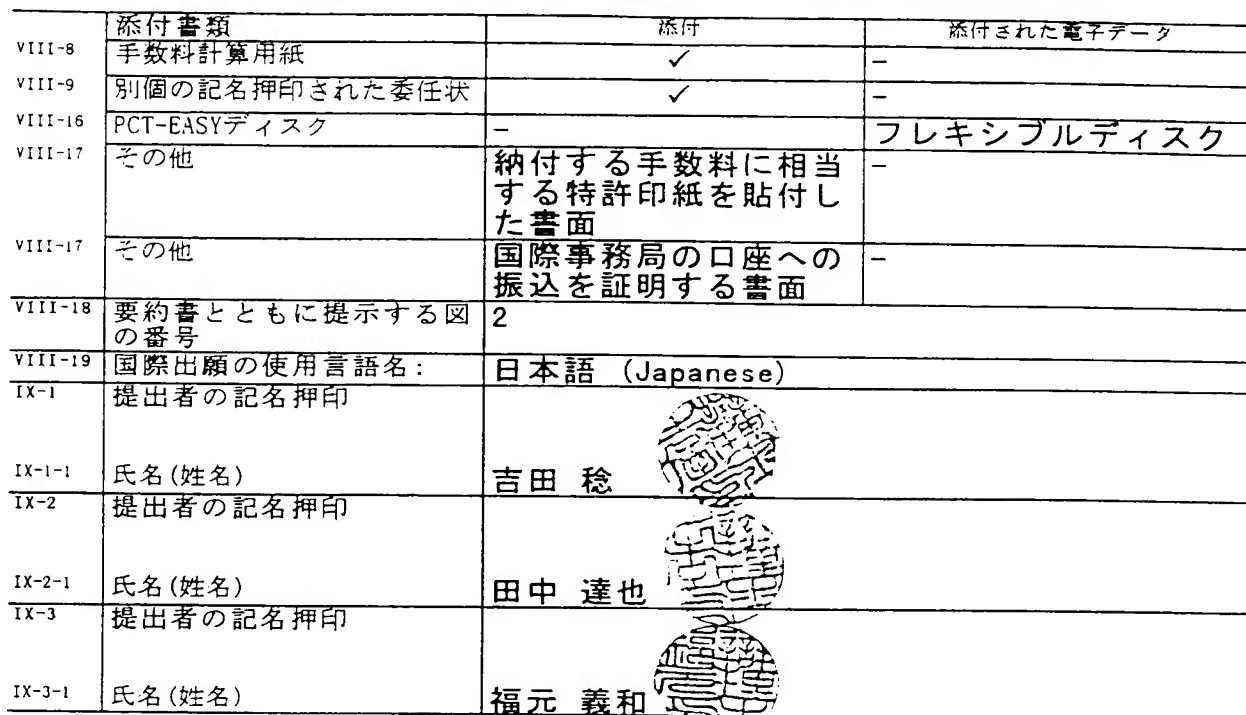 添付書類 添付 添付された電子データ
VIII-8 手数料計算用紙 ✓ –
VIII-9 別個の記名押印された委任状 ✓ –
VIII-16 PCT-EASYディスク – フレキシブルディスク
VIII-17 その他 納付する手数料に相当 –
する特許印紙を貼付し
た書面
VIII-17 その他 国際事務局の口座への –
振込を証明する書面
VIII-18 要約書とともに提示する図 2
の番号
VIII-19 国際出願の使用言語名: 日本語 (Japanese)
IX-1 提出者の記名押印
IX-1-1 氏名(姓名) 吉田 稔
IX-2 提出者の記名押印
IX-2-1 氏名(姓名) 田中 達也
IX-3 提出者の記名押印
IX-3-1 氏名(姓名) 福元 義和